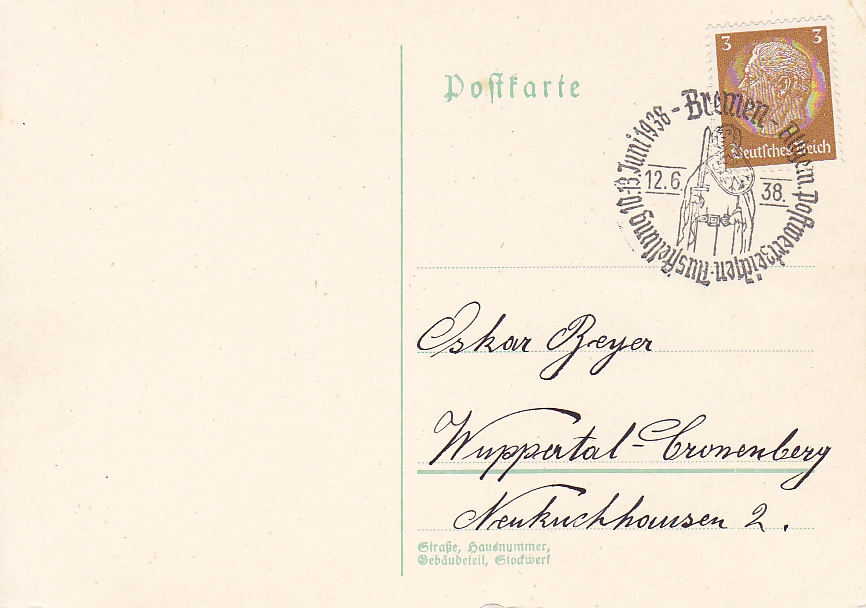 Postkarte
3 3
Deutsches Reich
- Bremen - Allgem. Postwertzeichen-Ausstellung 10.-13. Juni 1938
12.6. 38.
Oskar Beyer
Wuppertal-Cronenberg
Neukuchhausen 2.
Straße, Hausnummer,
Gebäudeteil, Stockwerk